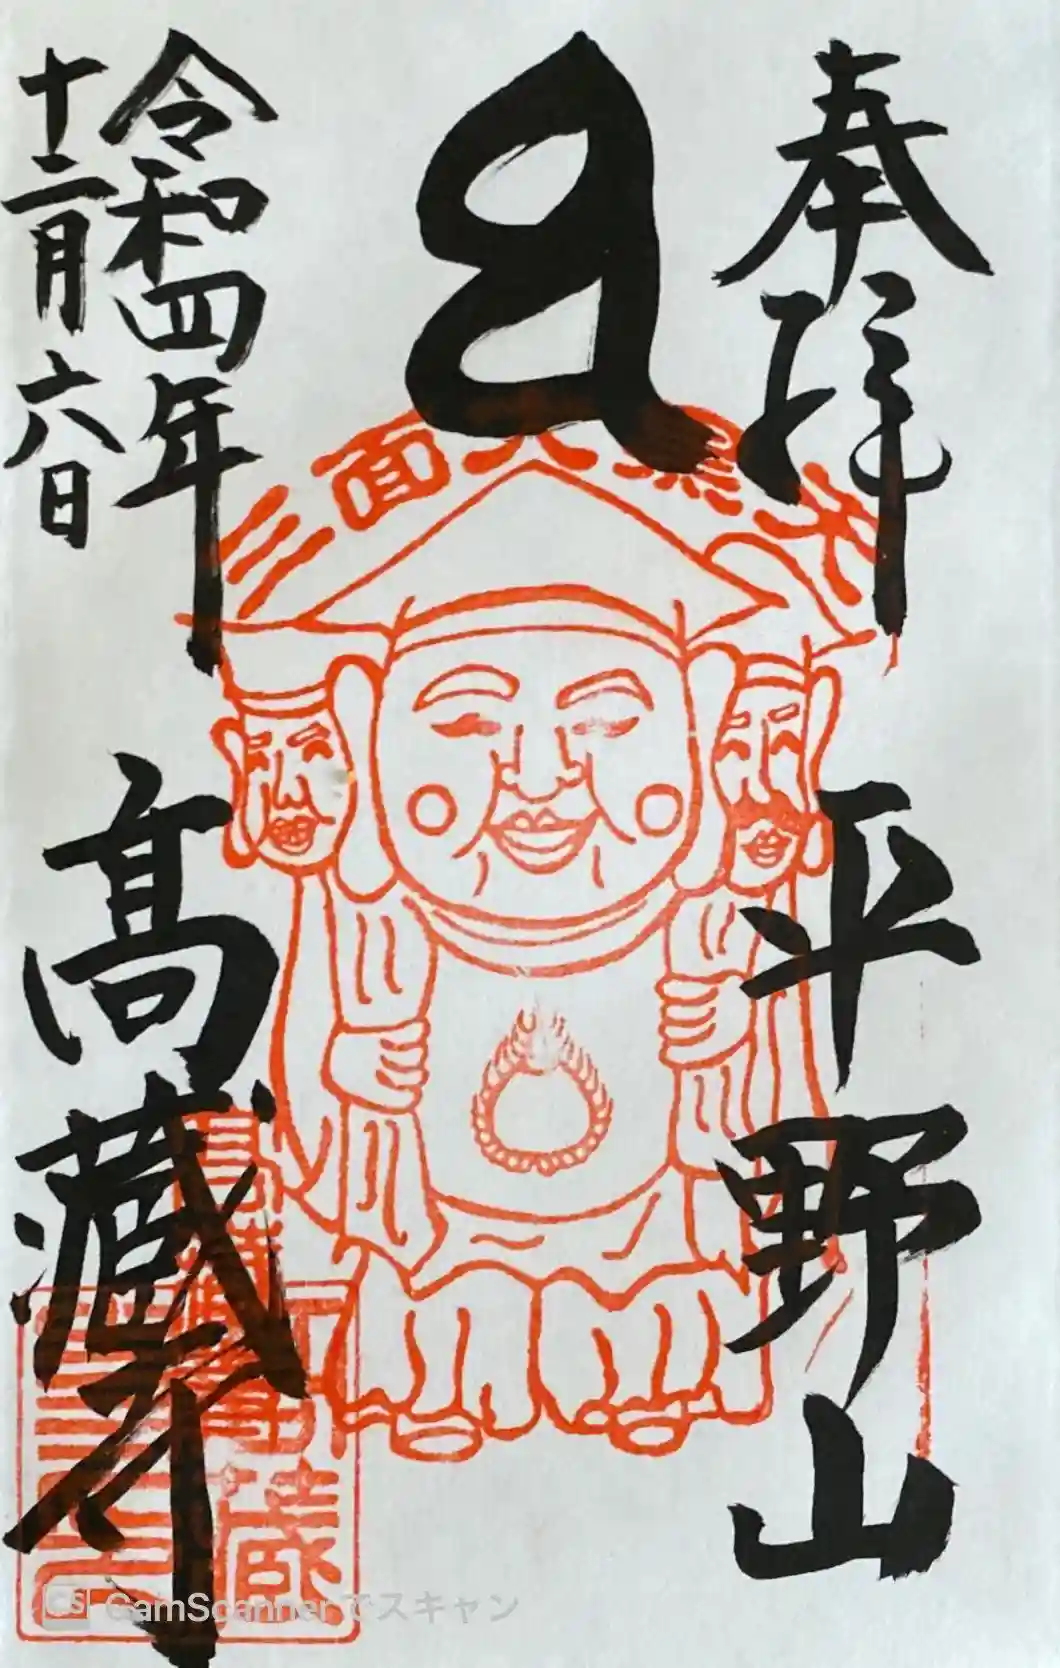 奉拝
平野山
三面大黒天
令和四年
十二月六日
高蔵寺
CamScannerでスキャン